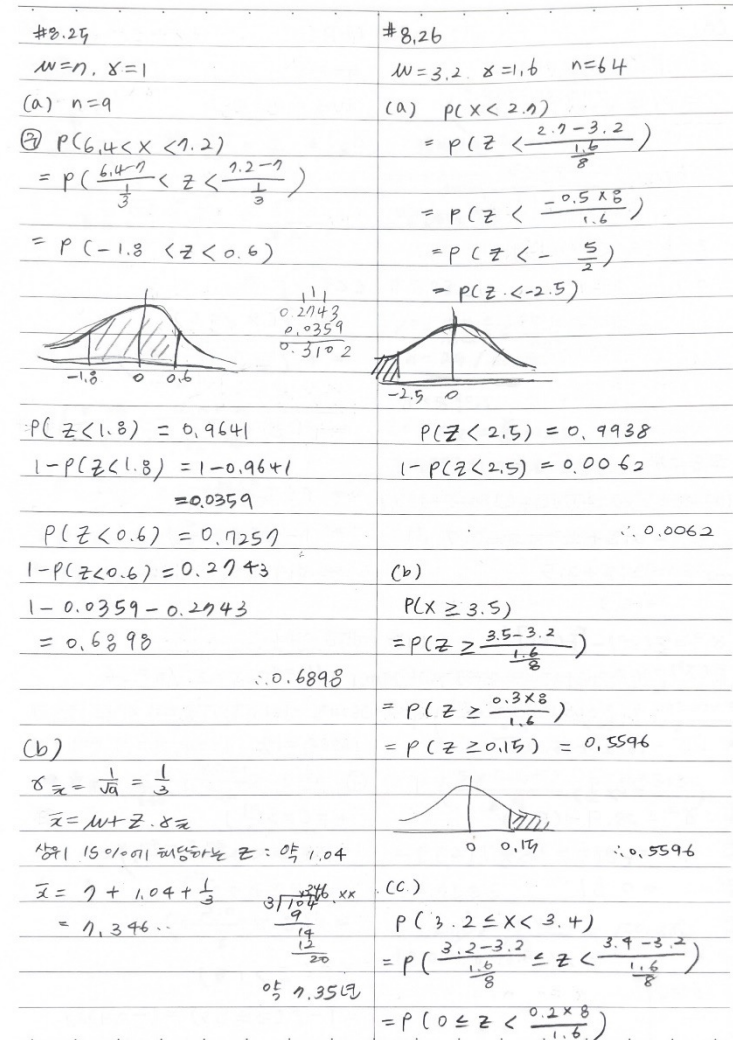 #8.25
μ=7. σ=1
(a) n=9
P(6.4<X<7.2)
= P( (6.4-7)/(1/3) < Z < (7.2-7)/(1/3) )
= P (-1.8 <Z<0.6)
1 1 1
0.2743
0.0359
0.3102
-1.8 0 0.6
P(Z<1.8) = 0.9641
1-P(Z<1.8) = 1-0.9641
=0.0359
P(Z<0.6) = 0.7257
1-P(Z<0.6) = 0.2743
1-0.0359-0.2743
= 0.6898
∴0.6898
(b)
σx̄ = 1/√9 = 1/3
x̄ = μ+Z.σx̄
상위 15%에 해당하는 Z : 약 1.04
x̄ = 7 + 1.04 + 1/3
= 7.346..
346.xx
3)104
9
14
12
20
약 7.35년
#8.26
μ=3.2 σ=1.6 n=64
(a) P(X<2.7)
= P(Z < (2.7-3.2)/(1.6/8) )
= P(Z < (-0.5×8)/1.6 )
= P(Z < - 5/2)
= P(Z.<-2.5)
-2.5 0
P(Z<2.5) = 0.9938
1-P(Z<2.5) = 0.0062
∴0.0062
(b)
P(X ≥ 3.5)
= P(Z ≥ (3.5-3.2)/(1.6/8) )
= P(Z ≥ (0.3×8)/1.6 )
= P(Z ≥0.15) = 0.5596
0 0.15
∴0.5596
(c.)
P(3.2≤X<3.4)
= P( (3.2-3.2)/(1.6/8) ≤ Z < (3.4-3.2)/(1.6/8) )
= P(0≤Z < (0.2×8)/1.6 )